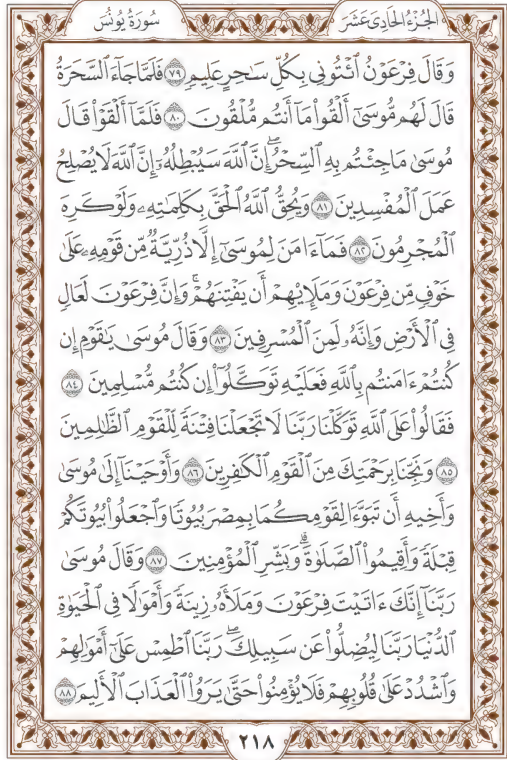 الجُزْءُ الحَادِي عَشَرَ
سُورَةُ يُونُسَ
وَقَالَ فِرْعَوْنُ ٱئْتُونِي بِكُلِّ سَٰحِرٍ عَلِيمٖ ٧٩ فَلَمَّا جَآءَ ٱلسَّحَرَةُ
قَالَ لَهُم مُّوسَىٰٓ أَلْقُواْ مَآ أَنتُم مُّلْقُونَ ٨٠ فَلَمَّآ أَلْقَوْاْ قَالَ
مُوسَىٰ مَا جِئْتُم بِهِ ٱلسِّحْرُۖ إِنَّ ٱللَّهَ سَيُبْطِلُهُۥٓ إِنَّ ٱللَّهَ لَا يُصْلِحُ
عَمَلَ ٱلْمُفْسِدِينَ ٨١ وَيُحِقُّ ٱللَّهُ ٱلْحَقَّ بِكَلِمَٰتِهِۦ وَلَوْ كَرِهَ
ٱلْمُجْرِمُونَ ٨٢ فَمَآ ءَامَنَ لِمُوسَىٰٓ إِلَّا ذُرِّيَّةٞ مِّن قَوْمِهِۦ عَلَىٰ
خَوْفٖ مِّن فِرْعَوْنَ وَمَلَإِيْهِمْ أَن يَفْتِنَهُمْۚ وَإِنَّ فِرْعَوْنَ لَعَالٖ
فِي ٱلْأَرْضِ وَإِنَّهُۥ لَمِنَ ٱلْمُسْرِفِينَ ٨٣ وَقَالَ مُوسَىٰ يَٰقَوْمِ إِن
كُنتُمْ ءَامَنتُم بِٱللَّهِ فَعَلَيْهِ تَوَكَّلُوٓاْ إِن كُنتُم مُّسْلِمِينَ ٨٤
فَقَالُواْ عَلَى ٱللَّهِ تَوَكَّلْنَا رَبَّنَا لَا تَجْعَلْنَا فِتْنَةٗ لِّلْقَوْمِ ٱلظَّٰلِمِينَ
٨٥ وَنَجِّنَا بِرَحْمَتِكَ مِنَ ٱلْقَوْمِ ٱلْكَٰفِرِينَ ٨٦ وَأَوْحَيْنَآ إِلَىٰ مُوسَىٰ
وَأَخِيهِ أَن تَبَوَّءَا لِقَوْمِكُمَا بِمِصْرَ بُيُوتٗا وَٱجْعَلُواْ بُيُوتَكُمْ
قِبْلَةٗ وَأَقِيمُواْ ٱلصَّلَوٰةَۗ وَبَشِّرِ ٱلْمُؤْمِنِينَ ٨٧ وَقَالَ مُوسَىٰ
رَبَّنَآ إِنَّكَ ءَاتَيْتَ فِرْعَوْنَ وَمَلَأَهُۥ زِينَةٗ وَأَمْوَٰلٗا فِي ٱلْحَيَوٰةِ
ٱلدُّنْيَا رَبَّنَا لِيُضِلُّواْ عَن سَبِيلِكَۖ رَبَّنَا ٱطْمِسْ عَلَىٰٓ أَمْوَٰلِهِمْ
وَٱشْدُدْ عَلَىٰ قُلُوبِهِمْ فَلَا يُؤْمِنُواْ حَتَّىٰ يَرَوُاْ ٱلْعَذَابَ ٱلْأَلِيمَ ٨٨
٢١٨